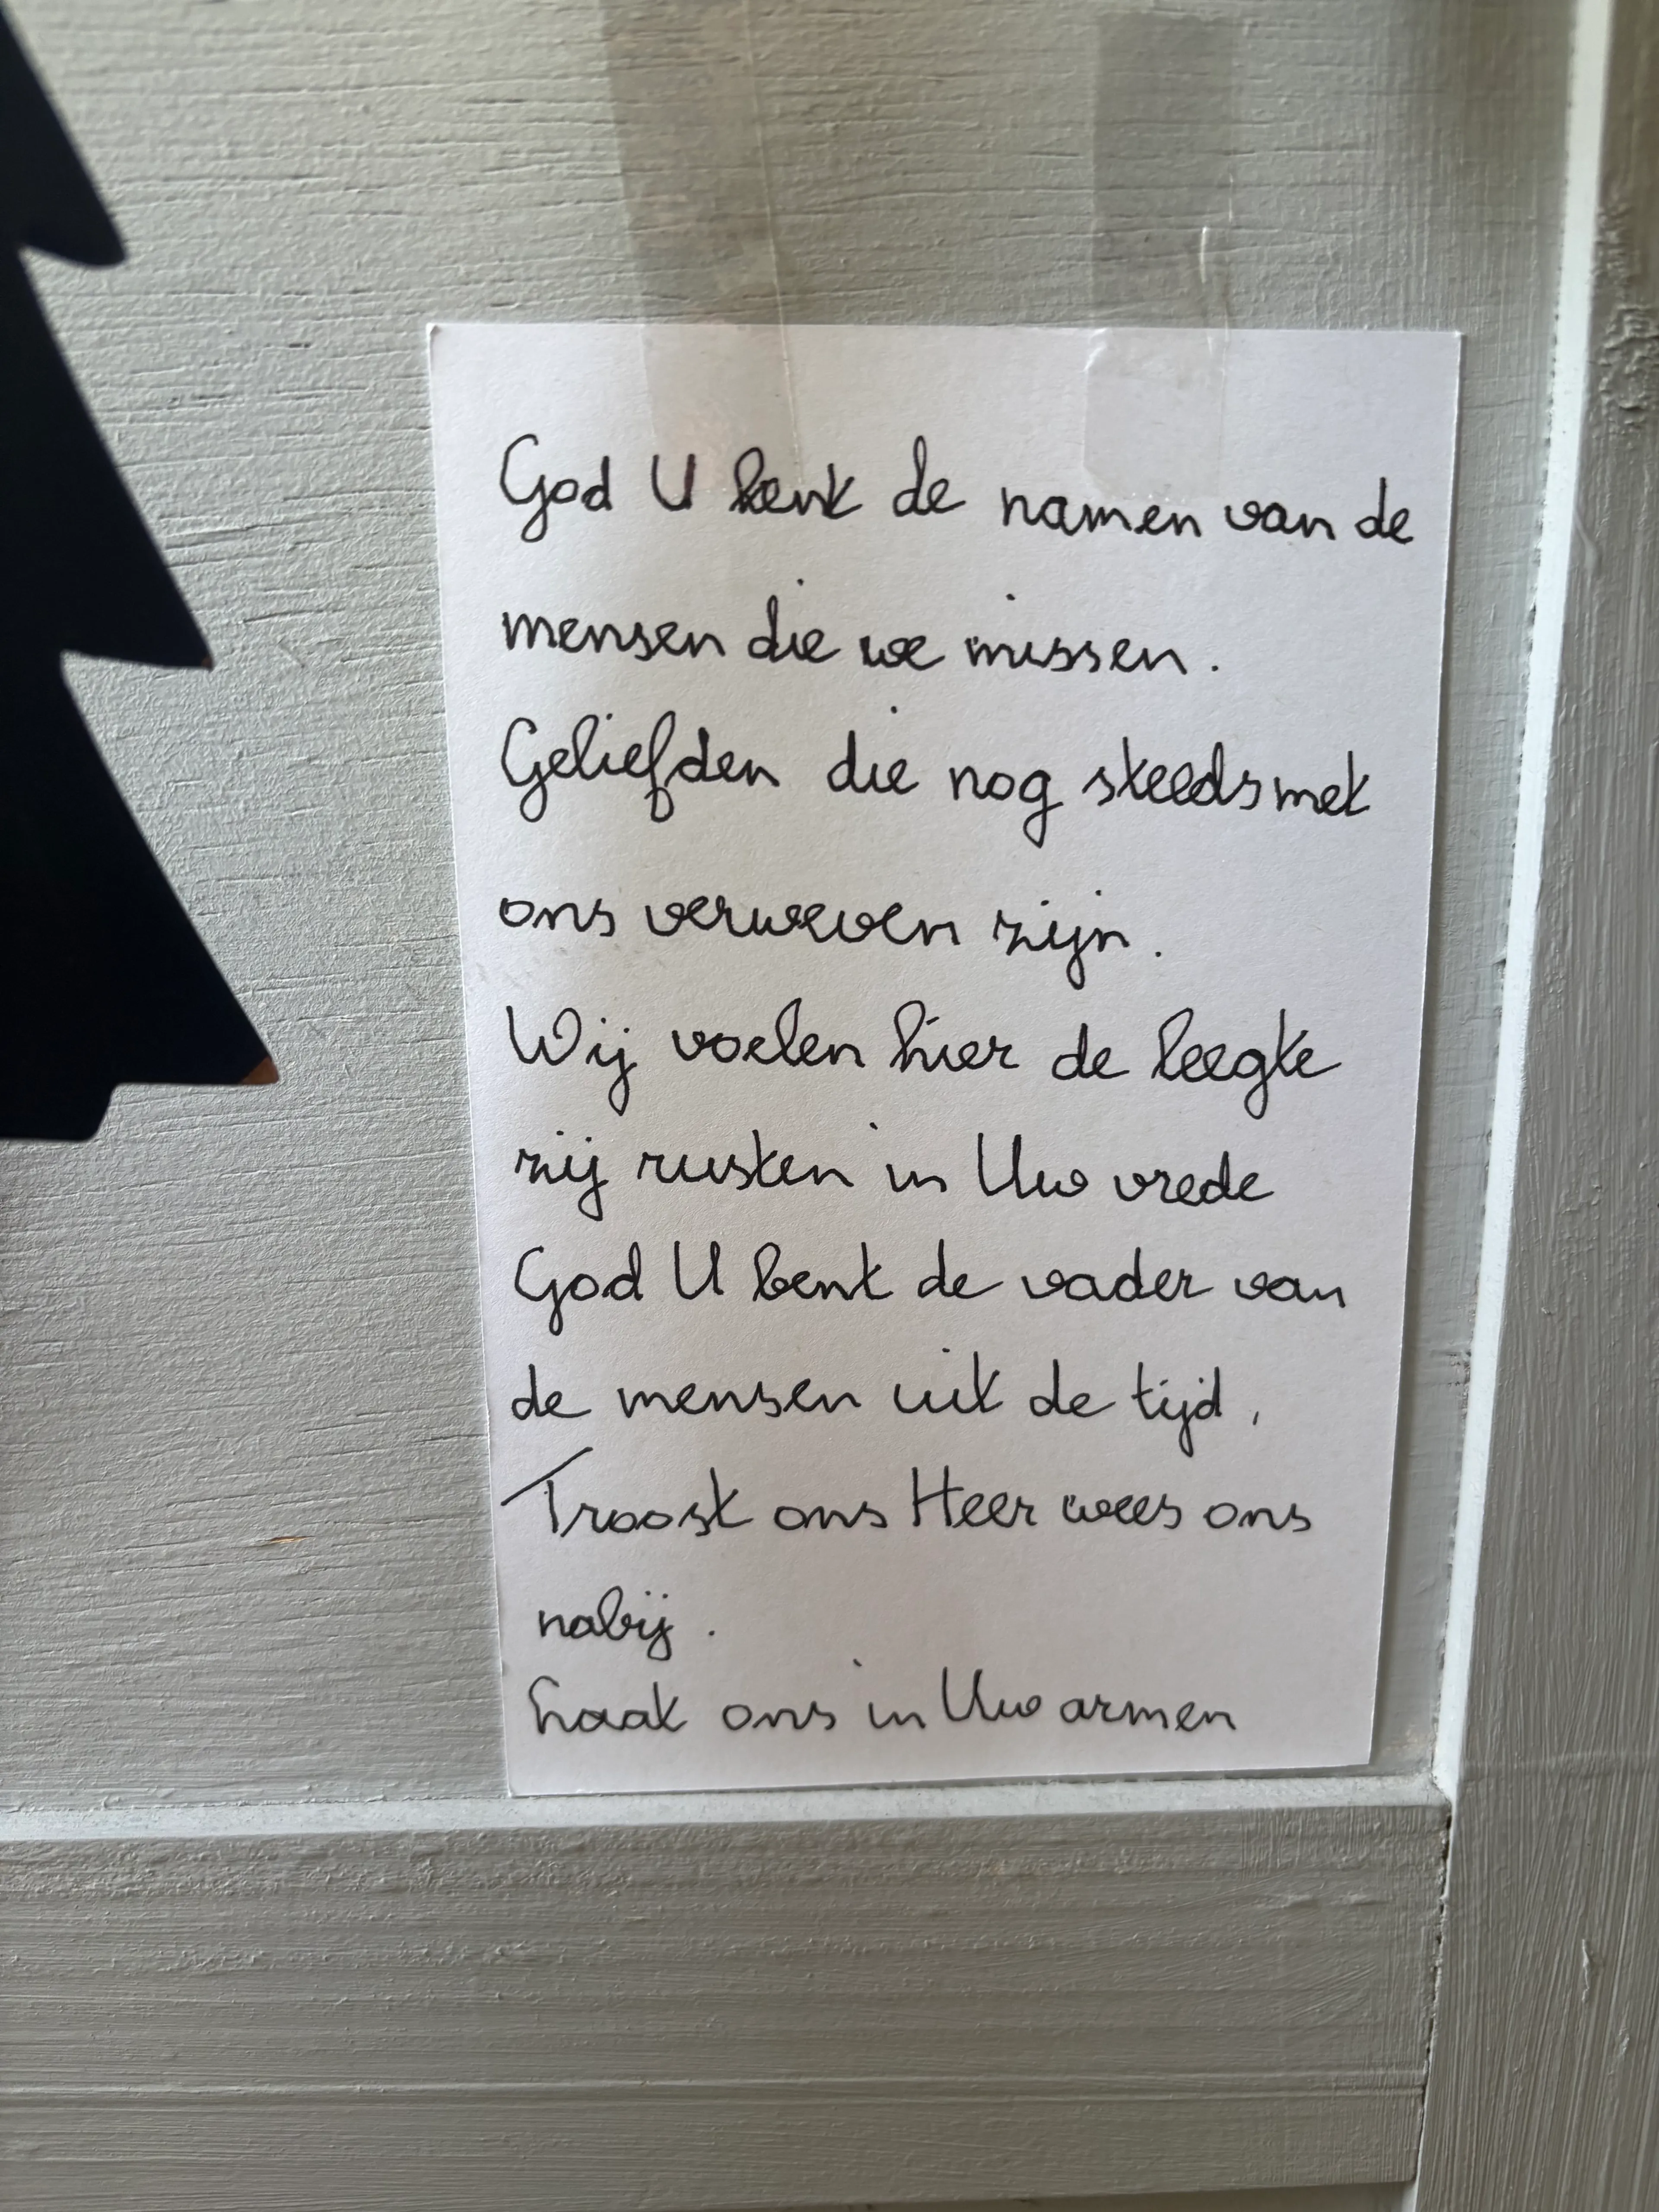 God U kent de namen van de
mensen die we missen.
Geliefden die nog steeds met
ons verweven zijn.
Wij voelen hier de leegte
zij rusten in Uw vrede
God U bent de vader van
de mensen uit de tijd,
Troost ons Heer wees ons
nabij.
ons in Uw armen